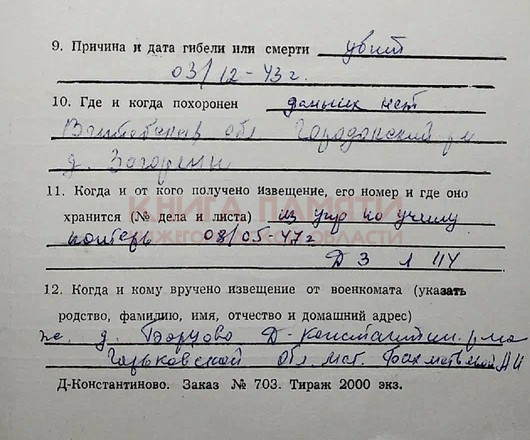 9. Причина и дата гибели или смерти убит
03/12-43 г.
10. Где и когда похоронен данных нет
Витебская обл Городокский р-н
д. Загоряни
11. Когда и от кого получено извещение, его номер и где оно
КНИГА ПАМЯТИ
хранится (№ дела и листа) из упр по учету
потерь 08/05-47 г
ОБЛАСТИ
Д 3 л 114
12. Когда и кому вручено извещение от военкомата (указать
родство, фамилию, имя, отчество и домашний адрес)
д. Борцово Д-Константин. р-на
Горьковской обл. мат. АИ
Д-Константиново. Заказ № 703. Тираж 2000 экз.